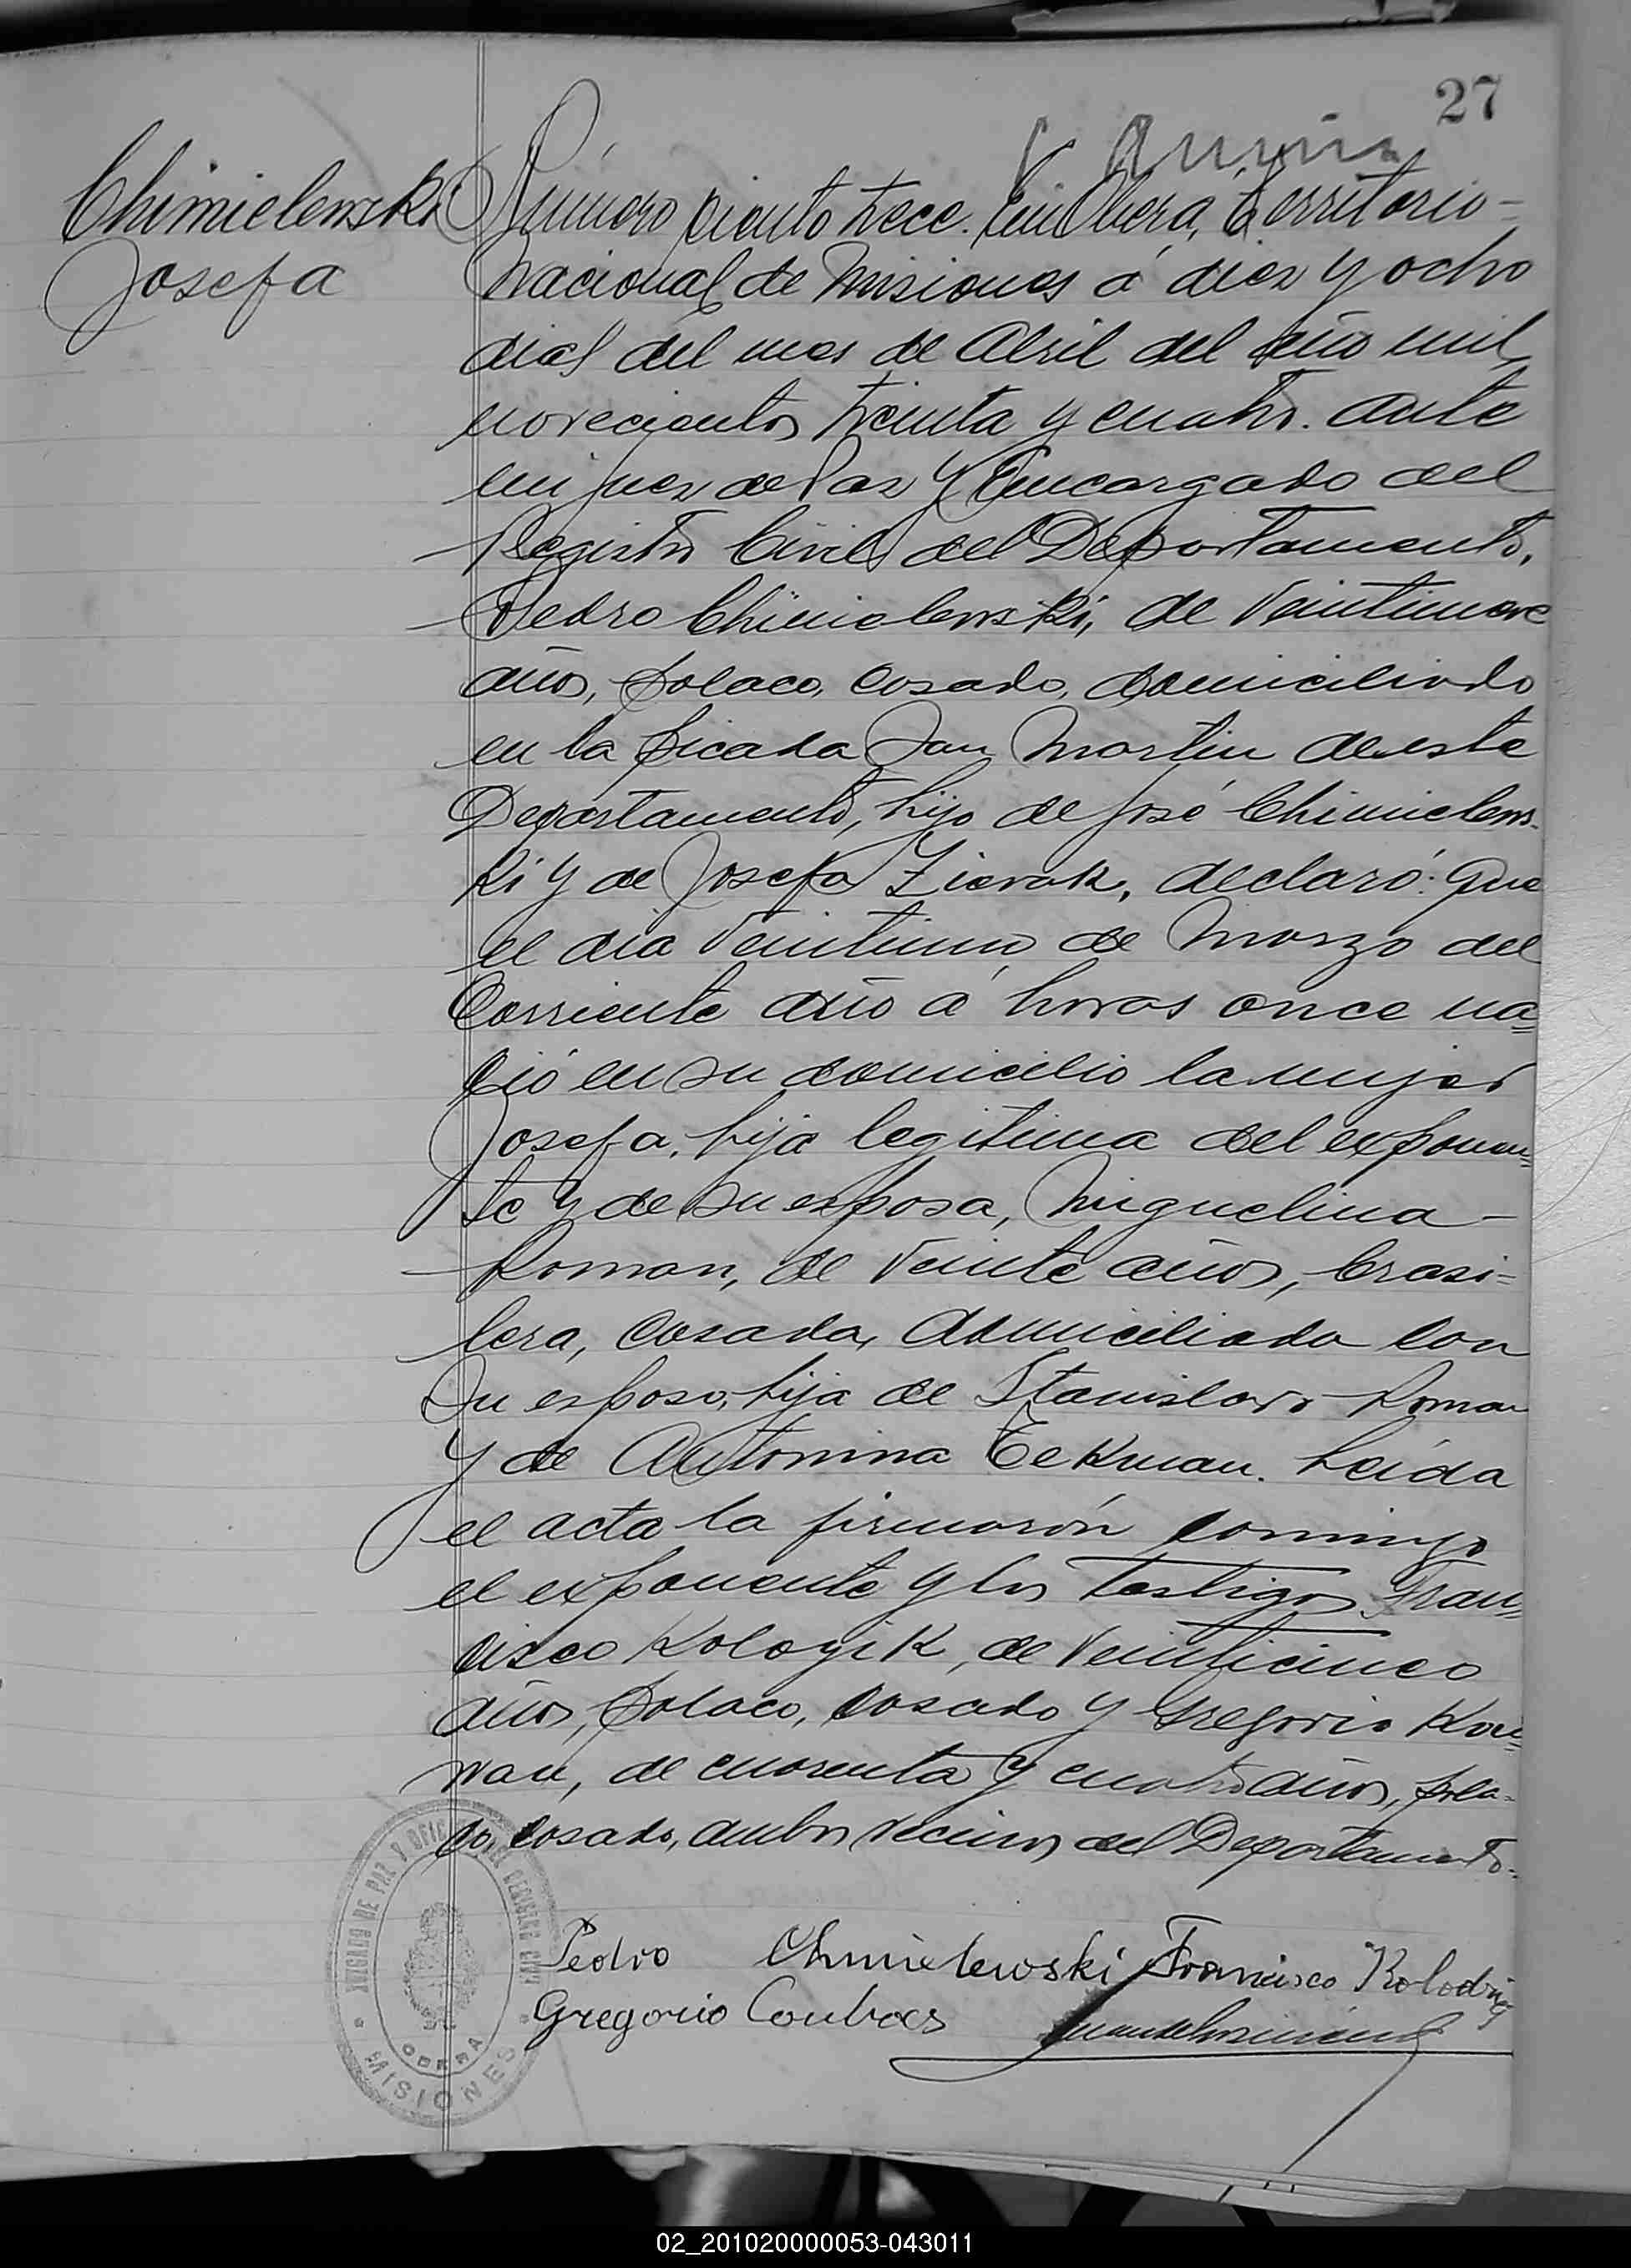 27
Chimielewski
Josefa
Número ciento trece. En Oberá, Territorio-
Nacional de Misiones á diez y ocho
dias del mes de Abril del año mil
novecientos treinta y cuatro. Ante
mi juez de Paz y Encargado del
Registro Civil del Departamento,
Pedro Chimielewski, de veintinueve
años, polaco, casado, domiciliado
en la picada San Martin de este
Departamento, hijo de José Chimielews-
ki y de Josefa Zievak, declaró: Que
el dia veintiuno de Marzo del
corriente año á horas once na=
ció en su domicilio la mujer
Josefa, hija legitima del exponen=
te y de su esposa, Miguelina-
Roman, de veinte años, brasi=
lera, casada, domiciliada con
su esposo, hija de Stanislavo Roman
y de Antonina Tekman. Leída
el acta la firmarón conmigo
el exponente y los testigos Fran=
cisco Kologik, de veinticinco
años, polaco, casado y Gregorio Kou=
wan, de cuarenta y cuatro años, pola-
co, casado, ambos vecinos del Departamento.=
Pedro Chmielewski Francisco
Gregorio
JUZGADO DE PAZ Y REGISTRO CIVIL
OBERA
MISIONES
02_201020000053-043011